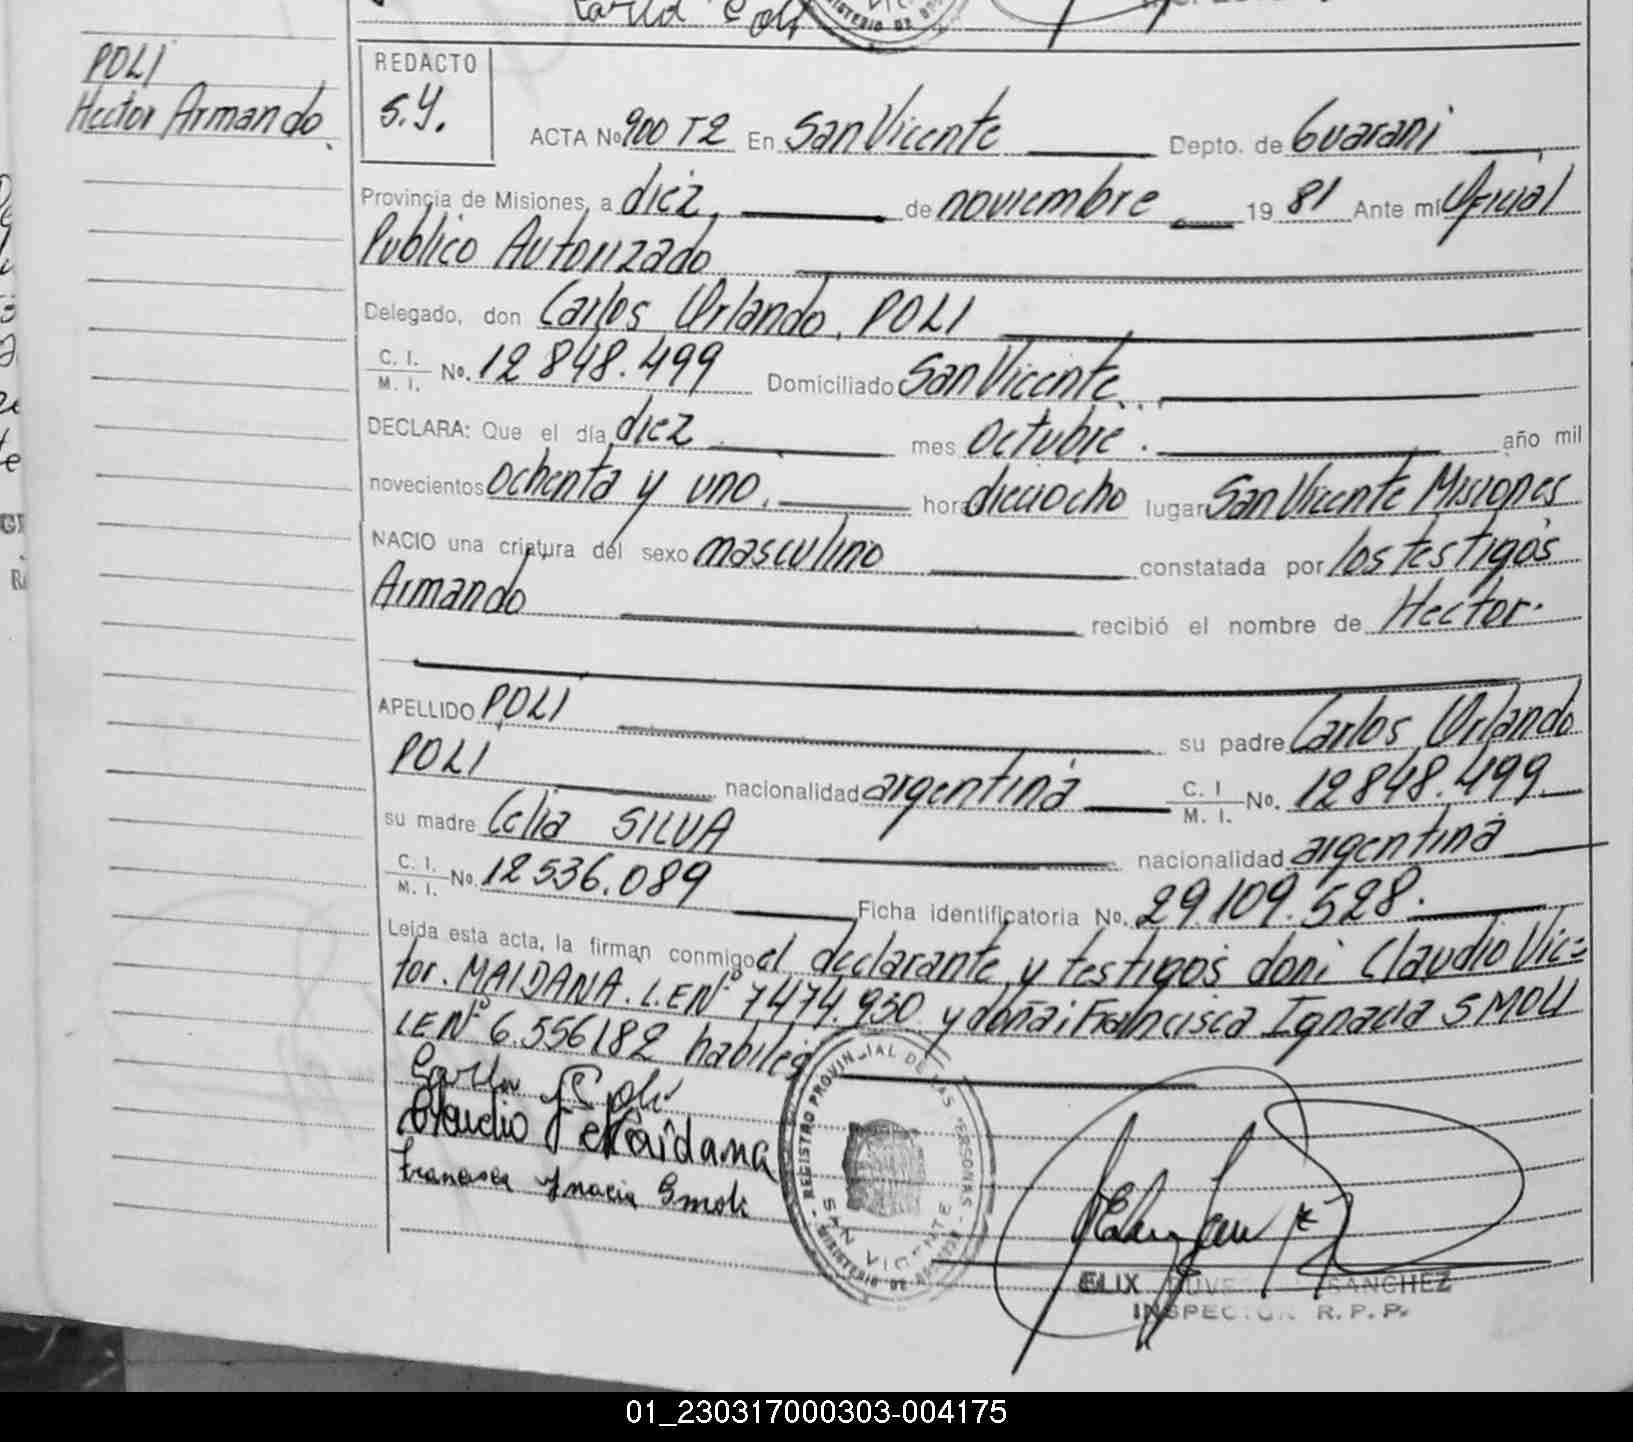 POLI
Hector Armando
REDACTO
S.Y.
ACTA No 900 T2 En San Vicente Depto. de Guarani
Provincia de Misiones, a diez, de noviembre 19 81 Ante mi Oficial
Publico Autorizado
Delegado, don Carlos Orlando, POLI
C. I.
M. I. No. 12 848.499 Domiciliado San Vicente
DECLARA: Que el día diez mes Octubre. año mil
novecientos ochenta y uno. hora dieciocho lugar San Vicente Misiones
NACIO una criatura del sexo masculino constatada por los testigos
Armando recibió el nombre de Hector.
APELLIDO POLI su padre Carlos Orlando
POLI nacionalidad argentina C. I.
M. I. No. 12848.499.
su madre Celia SILVA nacionalidad argentina
C. I.
M. I. No. 12536.089 Ficha identificatoria No. 29.109.528.
Leída esta acta, la firman conmigo el declarante, y testigos don: Claudio Vic=
tor. MAIDANA. L.E Nº 7474.930 y doña: Francisca Ignacia SMOLI
LE Nº 6.556182 habiles
Claudio Maidana
Francisca Ynacia Smoli
REGISTRO PROVINCIAL DE LAS PERSONAS
SAN VICENTE
MINISTERIO DE
ELIX SANCHEZ
INSPECTOR R.P.P.
01_230317000303-004175